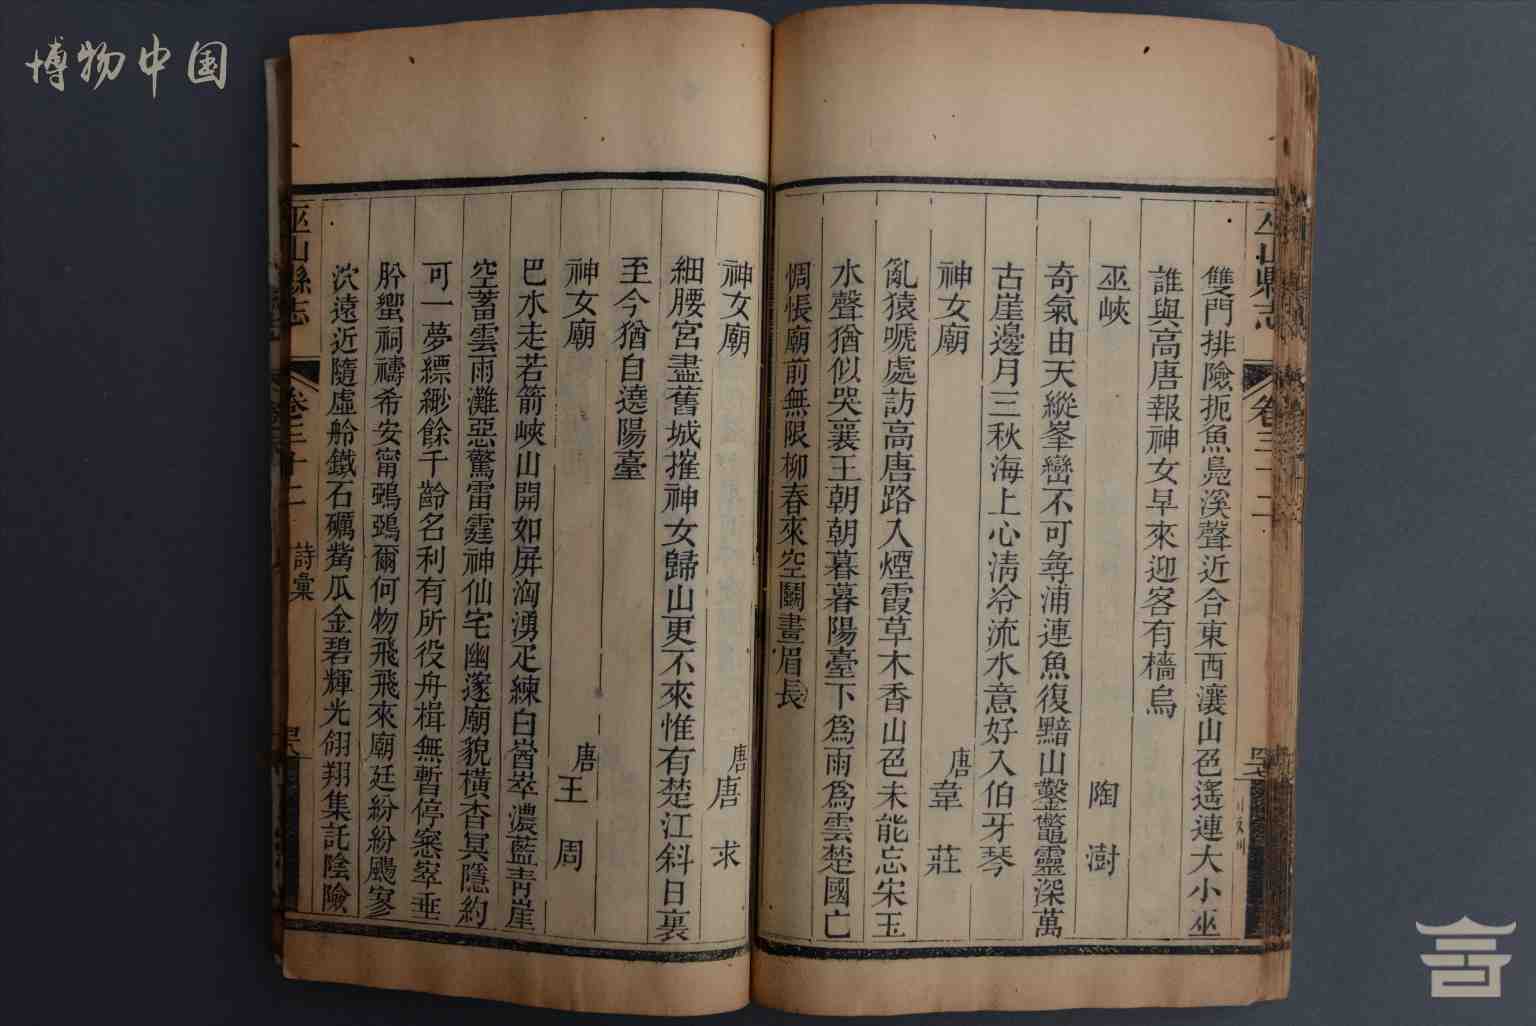 博物中国
巫山縣志
卷三十二
雙門排險扼魚鳧溪聲近合東西瀼山色遙連大小巫
誰與高唐報神女早來迎客有檣烏
巫峽
陶澍
奇氣由天縱峯巒不可尋浦連魚復黯山鑿鼈靈深萬
古崖邊月三秋海上心清冷流水意好入伯牙琴
神女廟
唐韋莊
亂猿嗁處訪高唐路入煙霞草木香山色未能忘宋玉
水聲猶似哭襄王朝朝暮暮陽臺下為雨為雲楚國亡
惆悵廟前無限柳春來空鬭畫眉長
神女廟
唐唐求
細腰宮盡舊城摧神女歸山更不來惟有楚江斜日裏
至今猶自遶陽臺
神女廟
唐王周
巴水走若箭峽山開如屏洶湧疋練白崷崒濃藍青崖
空蓄雲雨灘惡驚雷霆神仙宅幽邃廟貌橫杳冥隱約
可一夢縹緲餘千齡名利有所役舟楫無暫停窸窣垂
肸蠁祠禱希安甯鵶鵶爾何物飛飛來廟廷紛紛颺寥
泬遠近隨虛舲鐵石礪觜瓜金碧輝光翎翔集託陰險
巫山縣志
卷三十二
詩彙